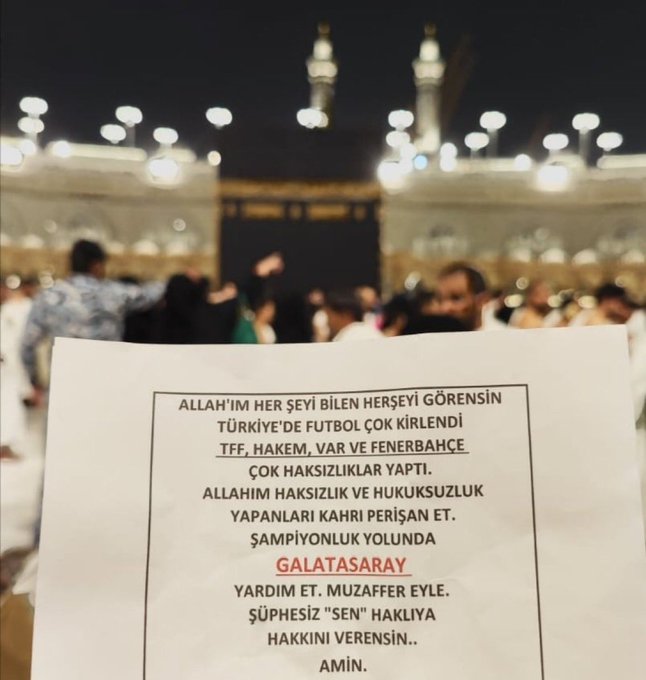 ALLAH'IM HER ŞEYİ BİLEN HERŞEYİ GÖRENSİN
TÜRKİYE'DE FUTBOL ÇOK KİRLENDİ
TFF, HAKEM, VAR VE FENERBAHÇE
ÇOK HAKSIZLIKLAR YAPTI.
ALLAHIM HAKSIZLIK VE HUKUKSUZLUK
YAPANLARI KAHRI PERİŞAN ET.
ŞAMPİYONLUK YOLUNDA
GALATASARAY
YARDIM ET. MUZAFFER EYLE.
ŞÜPHESİZ "SEN" HAKLIYA
HAKKINI VERENSİN..
AMİN.